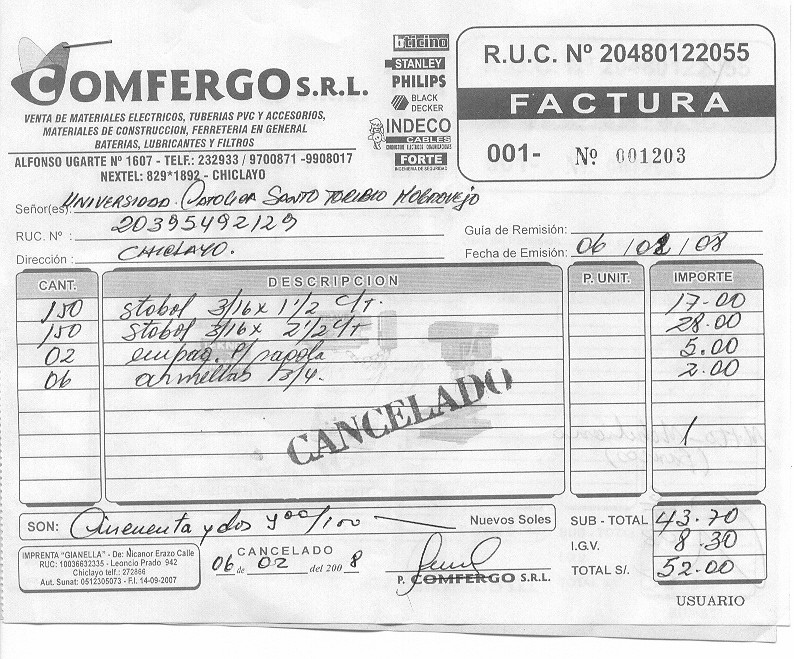 COMFERGO S.R.L.
VENTA DE MATERIALES ELECTRICOS, TUBERIAS PVC Y ACCESORIOS,
MATERIALES DE CONSTRUCCION, FERRETERIA EN GENERAL
BATERIAS, LUBRICANTES Y FILTROS
ALFONSO UGARTE Nº 1607 - TELF.: 232933 / 9700871 -9908017
NEXTEL: 829*1892 - CHICLAYO
bticino
STANLEY
PHILIPS
BLACK
DECKER
INDECO
CABLES
FORTE
INGENIERIA DE SEGURIDAD
R.U.C. Nº 20480122055
FACTURA
001- Nº 001203
Señor(es): Universidad Catolica Santo Toribio Mogrovejo
RUC. Nº : 20395492129
Guía de Remisión:
Dirección : CHICLAYO.
Fecha de Emisión: 06 / 02 / 08
CANT. DESCRIPCION P. UNIT. IMPORTE
150 stobol 3/16 x 1 1/2 c/t. 17.00
150 stobol 3/16x 2 1/2 c/t 28.00
02 empaq. p/ 5.00
06 armellas 3/4. 2.00
CANCELADO
SON: Cincuenta y dos y 00/100 Nuevos Soles
SUB - TOTAL 43.70
I.G.V. 8.30
TOTAL S/. 52.00
IMPRENTA "GIANELLA" - De: Nicanor Erazo Calle
RUC: 10036632335 - Leoncio Prado 942
Chiclayo telf.: 272866
Aut. Sunat: 0512305073 - F.I. 14-09-2007
CANCELADO
06 de 02 del 2008
P. COMFERGO S.R.L.
USUARIO